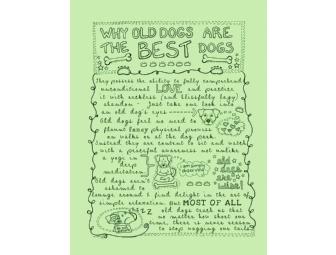 WHY OLD DOGS ARE
THE BEST DOGS
They possess the ability to fully comprehend
unconditional LOVE and practice
it with reckless (and blissfully lazy)
abandon - Just take one look into
an old dog's eyes
Old dogs feel no need to
flaunt fancy physical prowess
on walks or at the dog park
Instead they are content to sit and watch
with a peaceful awareness not unlike
a yogi in
deep
meditation.
old dogs
are
wise!
Old dogs aren't
ashamed to
lounge around & find delight in the art of
simple relaxation. But MOST OF ALL
zzz old dogs teach us that
no matter how short our
time, there is never reason
to stop wagging our tails